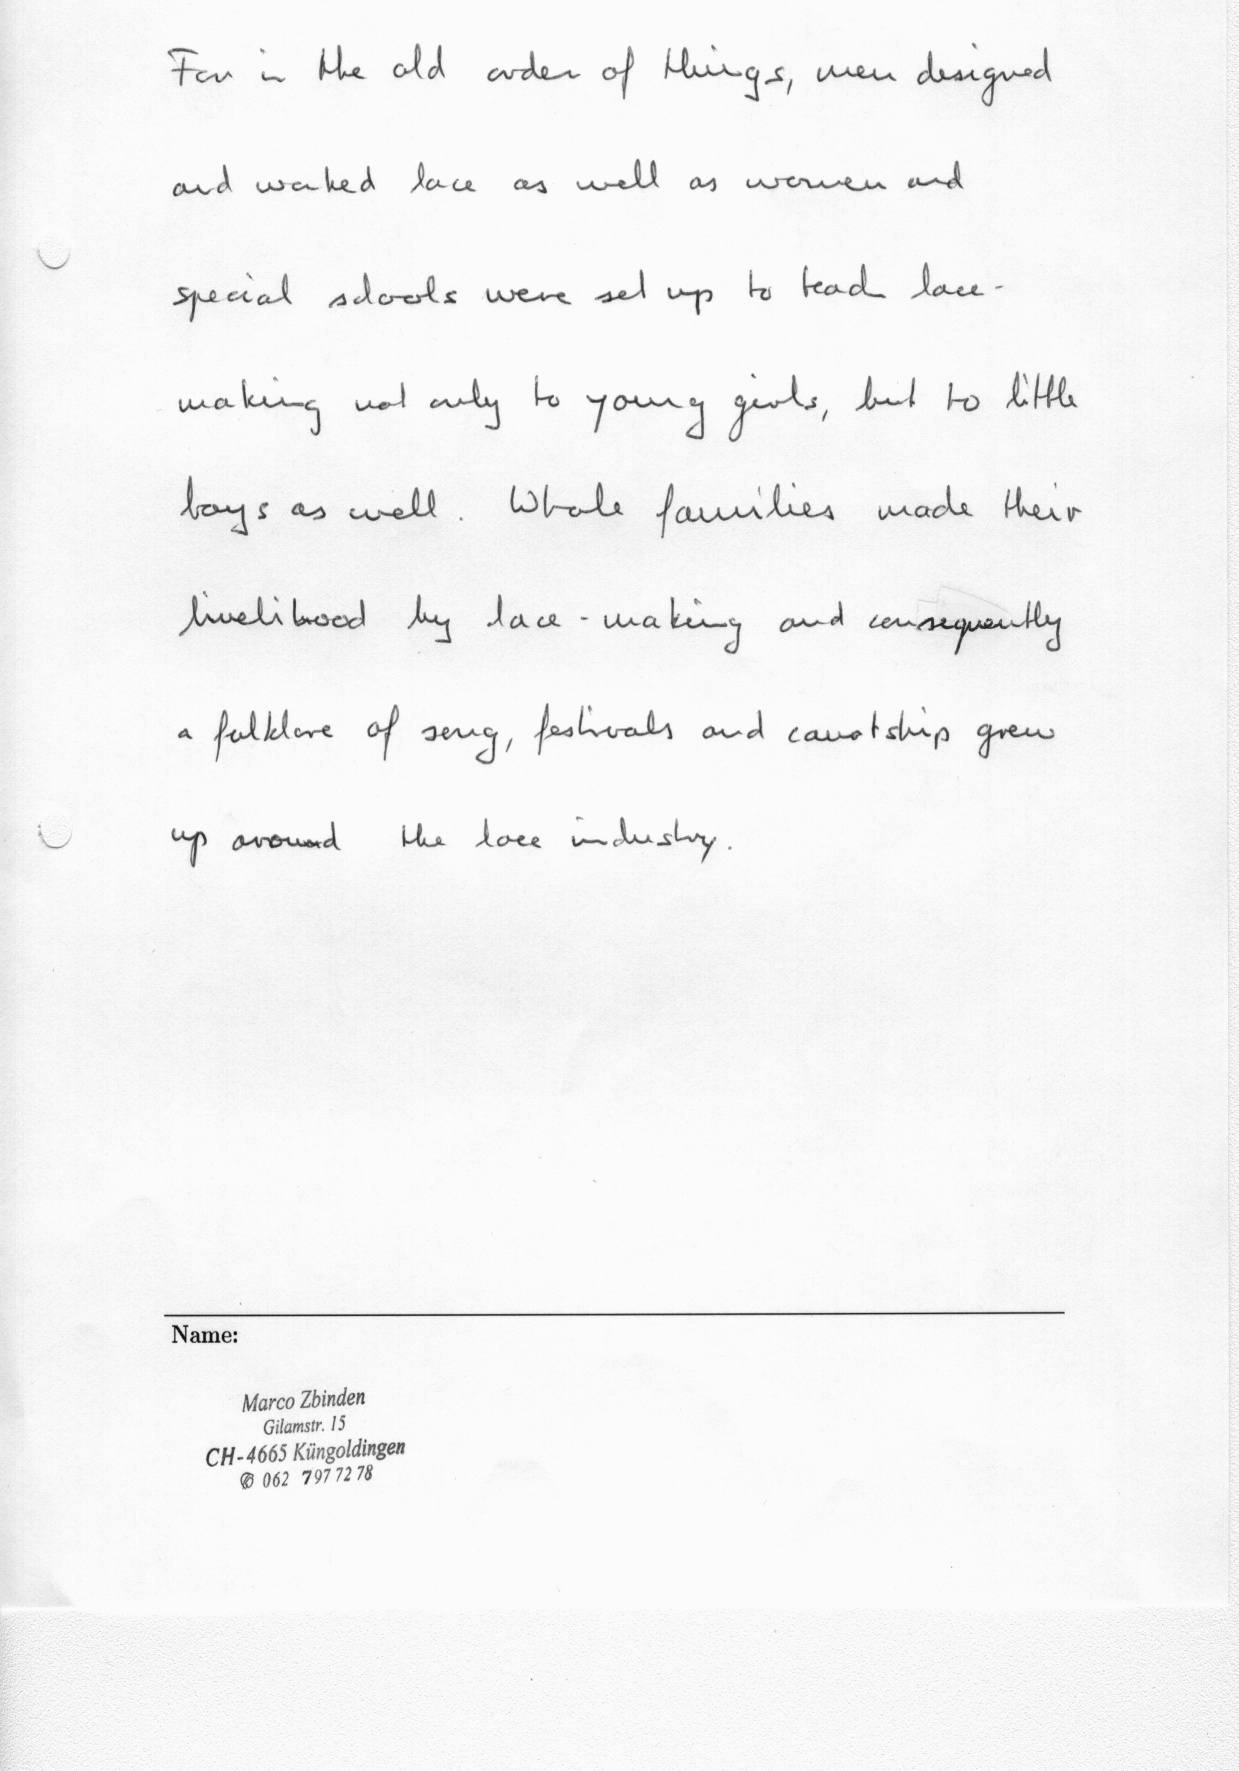 For in the old order of things, men designed
and worked lace as well as women and
special schools were set up to teach lace-
making not only to young girls, but to little
boys as well. Whole families made their
livelihood by lace-making and consequently
a folklore of song, festivals and courtship grew
up around the lace industry.
Name:
Marco Zbinden
Gilamstr. 15
CH-4665 Küngoldingen
✆ 062 797 72 78